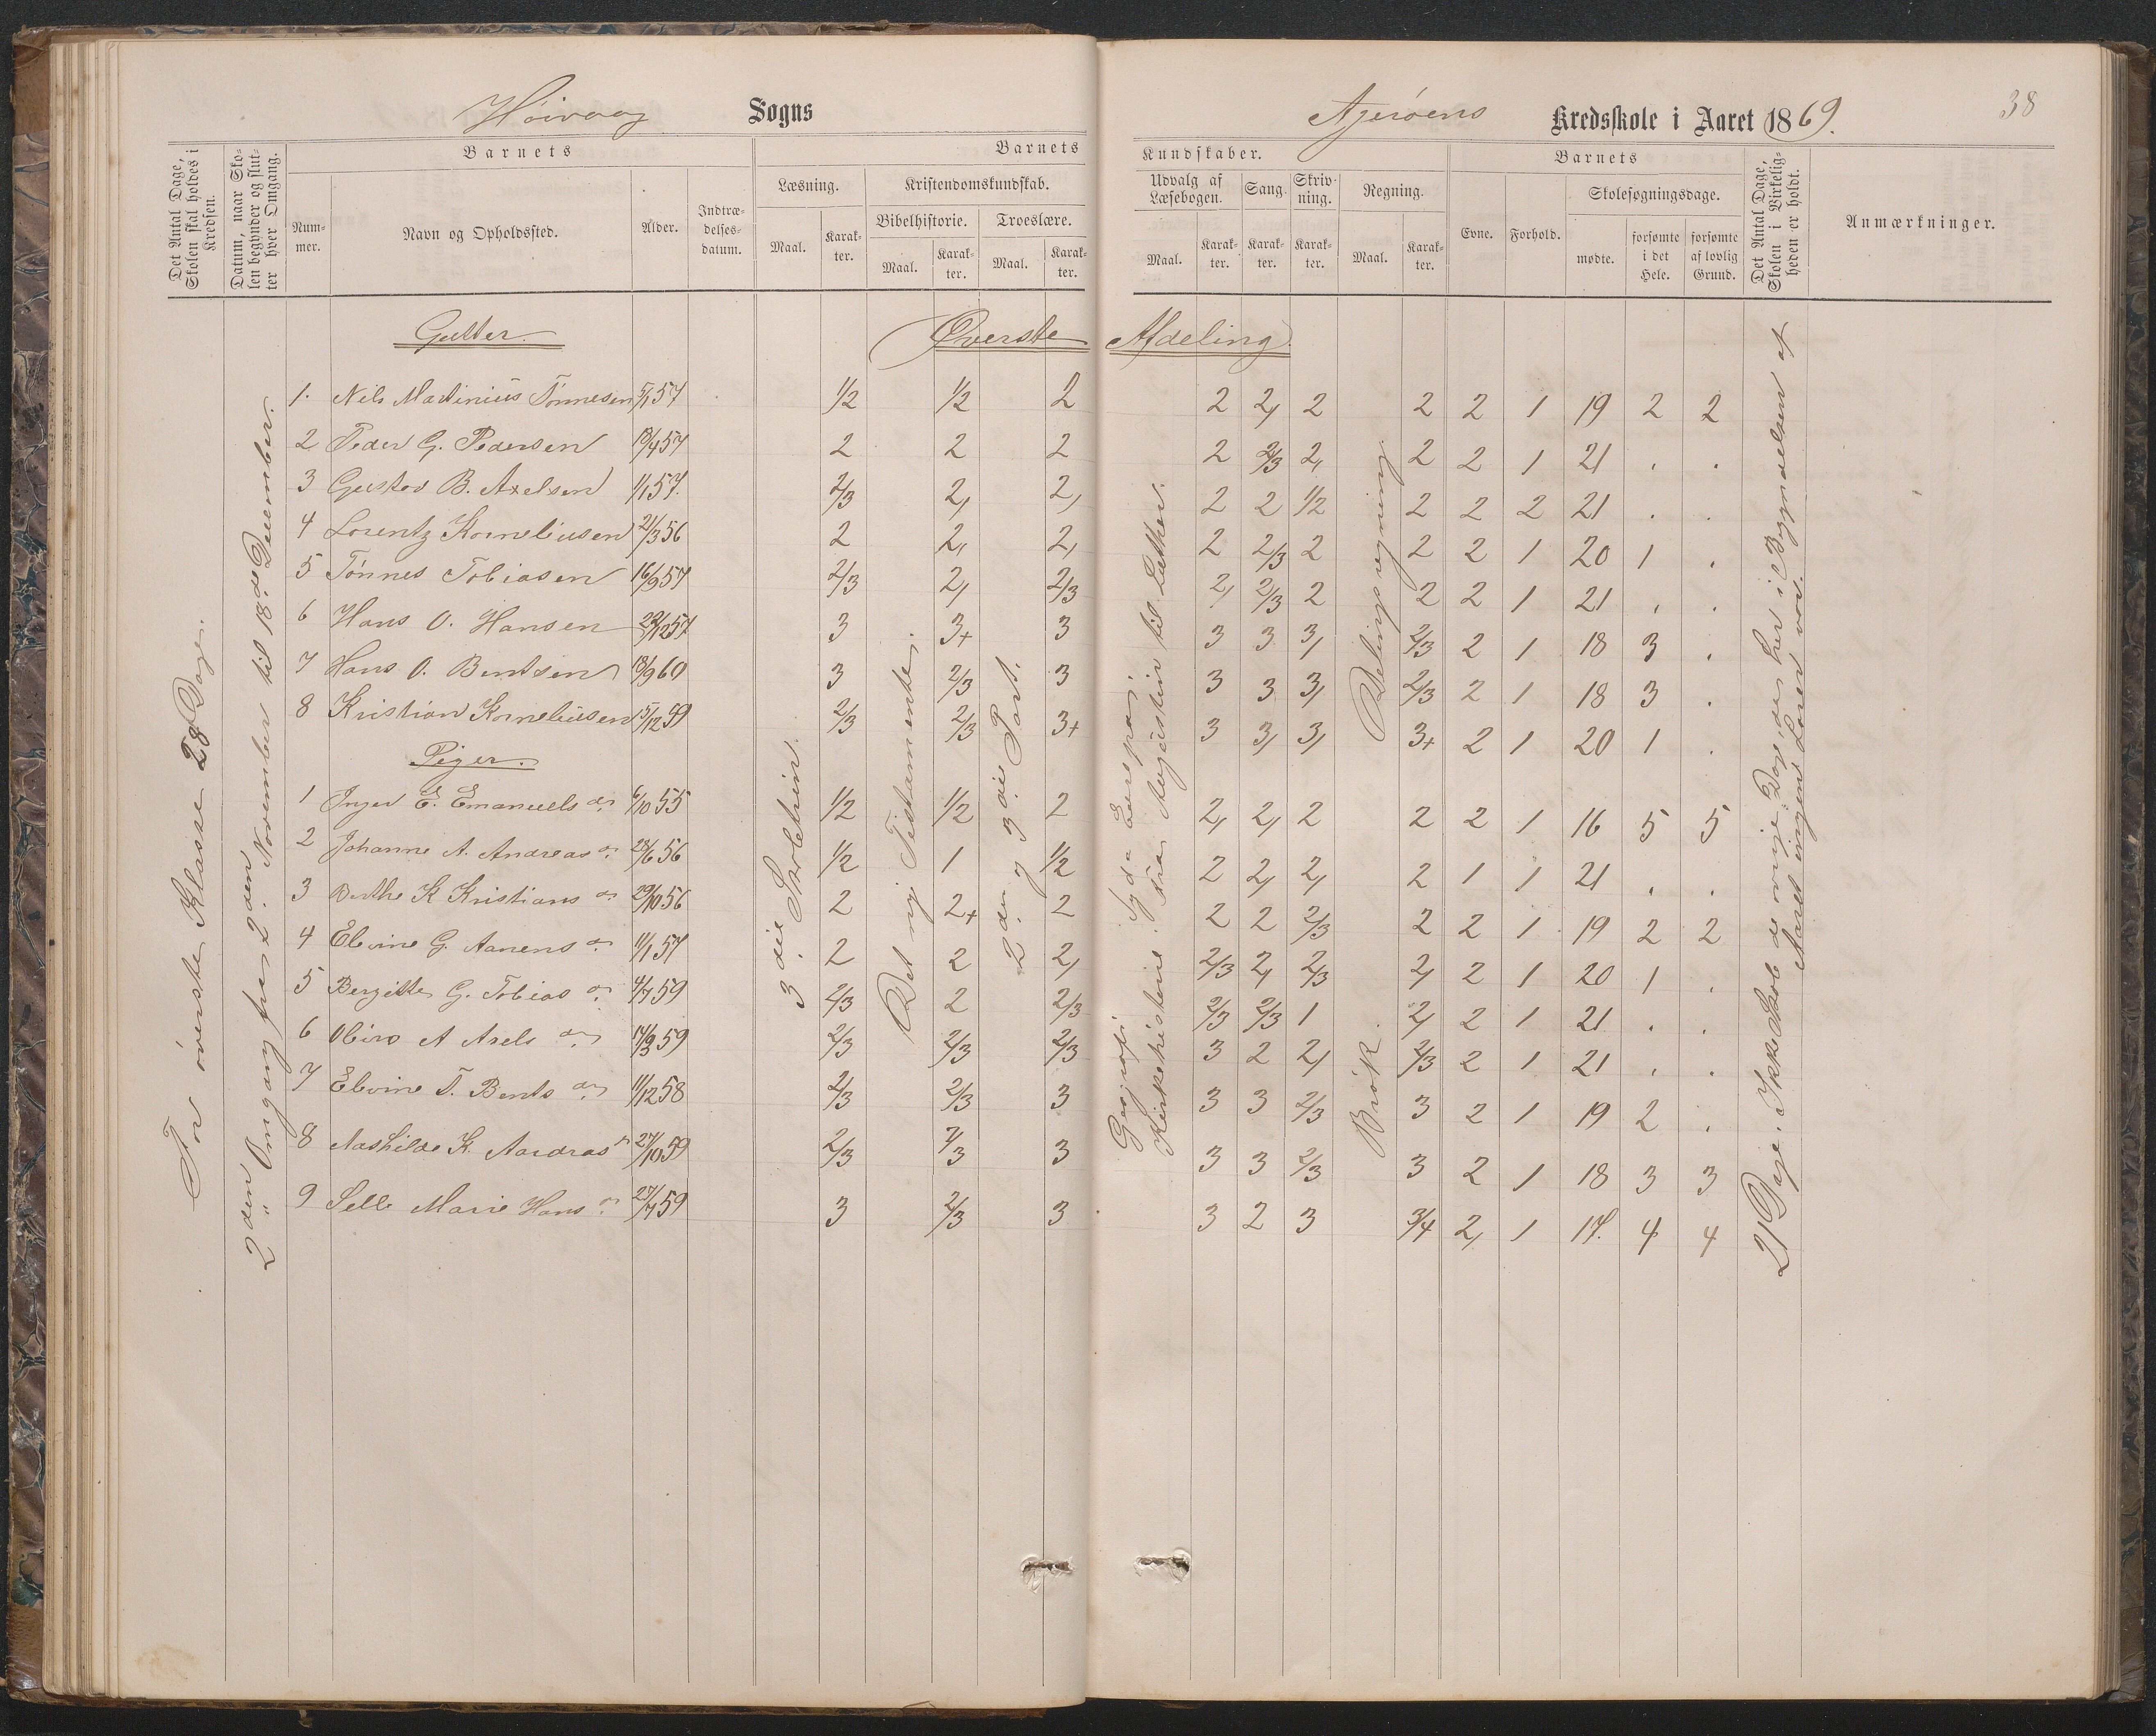 Høivaag Sogns
Ajerøens Kredsskole i Aaret 1869.
38
Det Antal Dage, Skolen skal holdes i Kredsen.
Datum, naar Skolen begynder og slutter hver Omgang.
Barnets
Nummer.
Navn og Opholdssted.
Alder.
Indtrædelsesdatum.
Barnets
Læsning.
Maal.
Karakter.
Kristendomskundskab.
Bibelhistorie.
Maal.
Karakter.
Troeslære.
Maal.
Karakter.
Kundskaber.
Udvalg af Læsebogen.
Maal.
Karakter.
Sang.
Karakter.
Skrivning.
Karakter.
Regning.
Maal.
Karakter.
Barnets
Evne.
Forhold.
Skolesøgningsdage.
mødte.
forsømte i det Hele.
forsømte af lovlig Grund.
Det Antal Dage, Skolen i Virkeligheden er holdt.
Anmærkninger.
For øverste Klasse 28 Dage.
2den Omgang fra 2den November til 18de December.
Gutter.
Øverste Afdeling.
1. Nils Martinius Tønnesen 5/1 57 1/2 1/2 2 2 2, 2 2 2 1 19 2 2
2 Peder G. Pedersen 18/4 57 2 2 2 2 2/3 2, 2 2 1 21 . .
3 Gustav B. Axelsen 1/1 57. 2/3 2, 2, 2 2 1/2 2 2 2 21 . .
4 Lorentz Korneliusen 21/3 56 2 2, 2, 2 2/3 2 2 2 1 20 1 .
5 Tønnes Tobiasen 16/9 57 2/3 2, 2/3 2, 2/3 2 2 2 1 21 . .
6 Hans O. Hansen 22/12 57 3 3+ 3 3 3 3, 2/3 2 1 18 3 .
7 Hans O. Bentsen 18/9 60 3 2/3 3 3 3 3, 2/3 2 1 18 3 .
8 Kristian Korneliusen 15/12 59 2/3 2/3 3+ 3 3, 3, 3+ 2 1 20 1 .
Piger.
1 Inger E. Emanuels dr. 6/10 55 1/2 1/2 2 2, 2, 2 2 2 1 16 5 5
2 Johanne A. Andreas dr. 28/6 56 1/2 1 1/2 2 2, 2, 2 1 1 21 . .
3 Berthe K Kristians dr 29/10 56 2 2+ 2 2 2 2/3 2 2 1 19 2 2
4 Elvine G. Aanens dr. 11/1 57 2 2 2, 2/3 2, 2/3 2, 2 1 20 1 .
5 Bergitte G. Tobias dr. 4/7 59 2/3 2 2/3 2/3 2/3 1 2, 2 1 21 . .
6 A Axels dr. 59 2/3 2/3 2/3 3 2 2, 2/3 2 1 21 . .
7 Elvine T. Bents dr. 11/12 58 2/3 2/3 3 3 3 2/3 3 2 1 19 2 .
8 K. 27/10 59 2/3 2/3 3 3 3 2/3 3 2 1 18 3 3
9 Marie Hans dr. 59 3 2/3 3 3 2 3 3/4 2, 1 17. 4 4
3die Skoletrin.
Det ny Testamente.
2den og 3die Part.
Geografi: Syd Europa.
Kirkehistorie: Fra Augustin til Luther.
Delingsregning.
Brøk.
21 Dage. Ikke Skole de øvrige Dage, da her i Begyndelsen af Aaret ingen Lærer var.